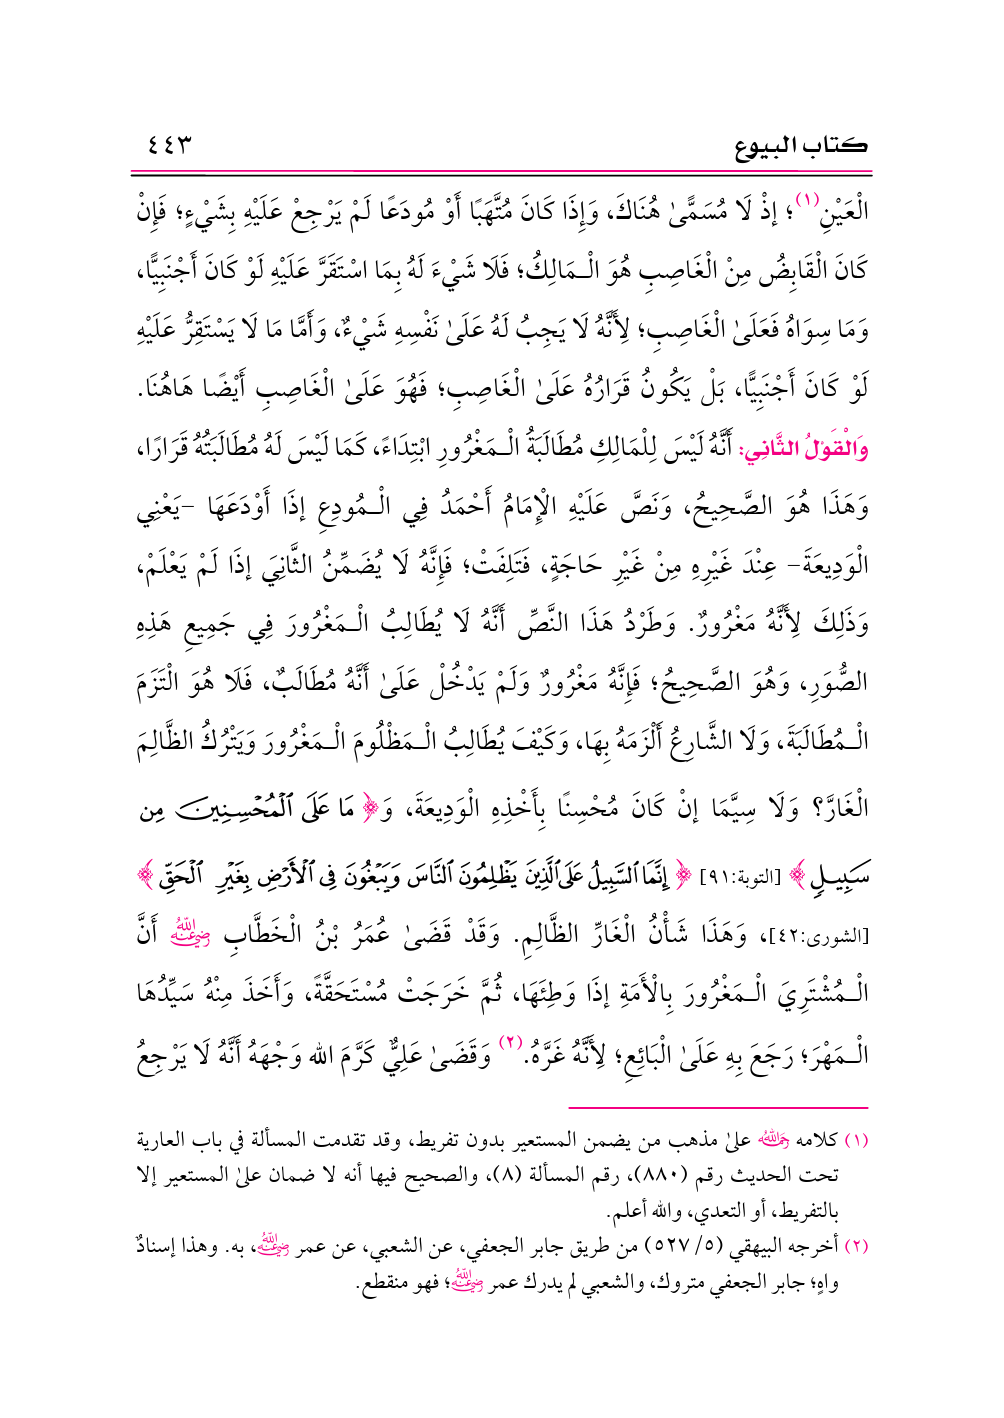 كتاب البيوع ٤٤٣
الْعَيْنِ(١)؛ إذْ لَا مُسَمًّى هُنَاكَ، وَإِذَا كَانَ مُتَّهَبًا أَوْ مُودَعًا لَمْ يَرْجِعْ عَلَيْهِ بِشَيْءٍ؛ فَإِنْ
كَانَ الْقَابِضُ مِنْ الْغَاصِبِ هُوَ الْـمَالِكُ؛ فَلَا شَيْءَ لَهُ بِمَا اسْتَقَرَّ عَلَيْهِ لَوْ كَانَ أَجْنَبِيًّا،
وَمَا سِوَاهُ فَعَلَىٰ الْغَاصِبِ؛ لِأَنَّهُ لَا يَجِبُ لَهُ عَلَىٰ نَفْسِهِ شَيْءٌ، وَأَمَّا مَا لَا يَسْتَقِرُّ عَلَيْهِ
لَوْ كَانَ أَجْنَبِيًّا، بَلْ يَكُونُ قَرَارُهُ عَلَىٰ الْغَاصِبِ؛ فَهُوَ عَلَىٰ الْغَاصِبِ أَيْضًا هَاهُنَا.
وَالْقَوْلُ الثَّانِي: أَنَّهُ لَيْسَ لِلْمَالِكِ مُطَالَبَةُ الْـمَغْرُورِ ابْتِدَاءً، كَمَا لَيْسَ لَهُ مُطَالَبَتُهُ قَرَارًا،
وَهَذَا هُوَ الصَّحِيحُ، وَنَصَّ عَلَيْهِ الْإِمَامُ أَحْمَدُ فِي الْـمُودِعِ إذَا أَوْدَعَهَا -يَعْنِي
الْوَدِيعَةَ- عِنْدَ غَيْرِهِ مِنْ غَيْرِ حَاجَةٍ، فَتَلِفَتْ؛ فَإِنَّهُ لَا يُضَمِّنُ الثَّانِيَ إذَا لَمْ يَعْلَمْ،
وَذَلِكَ لِأَنَّهُ مَغْرُورٌ. وَطَرْدُ هَذَا النَّصِّ أَنَّهُ لَا يُطَالِبُ الْـمَغْرُورَ فِي جَمِيعِ هَذِهِ
الصُّوَرِ، وَهُوَ الصَّحِيحُ؛ فَإِنَّهُ مَغْرُورٌ وَلَمْ يَدْخُلْ عَلَىٰ أَنَّهُ مُطَالَبٌ، فَلَا هُوَ الْتَزَمَ
الْـمُطَالَبَةَ، وَلَا الشَّارِعُ أَلْزَمَهُ بِهَا، وَكَيْفَ يُطَالِبُ الْـمَظْلُومَ الْـمَغْرُورَ وَيَتْرُكُ الظَّالِمَ
الْغَارَّ؟ وَلَا سِيَّمَا إنْ كَانَ مُحْسِنًا بِأَخْذِهِ الْوَدِيعَةَ، وَ﴿ مَا عَلَى ٱلْمُحْسِنِينَ مِن
سَبِيلٍ ﴾ [التوبة:٩١] ﴿ إِنَّمَا ٱلسَّبِيلُ عَلَى ٱلَّذِينَ يَظْلِمُونَ ٱلنَّاسَ وَيَبْغُونَ فِى ٱلْأَرْضِ بِغَيْرِ ٱلْحَقِّ ﴾
[الشورى:٤٢]، وَهَذَا شَأْنُ الْغَارِّ الظَّالِمِ. وَقَدْ قَضَىٰ عُمَرُ بْنُ الْخَطَّابِ رضي الله عنه أَنَّ
الْـمُشْتَرِيَ الْـمَغْرُورَ بِالْأَمَةِ إذَا وَطِئَهَا، ثُمَّ خَرَجَتْ مُسْتَحَقَّةً، وَأَخَذَ مِنْهُ سَيِّدُهَا
الْـمَهْرَ؛ رَجَعَ بِهِ عَلَىٰ الْبَائِعِ؛ لِأَنَّهُ غَرَّهُ.(٢) وَقَضَىٰ عَلِيٌّ كَرَّمَ الله وَجْهَهُ أَنَّهُ لَا يَرْجِعُ
(١) كلامه رحمه الله علىٰ مذهب من يضمن المستعير بدون تفريط، وقد تقدمت المسألة في باب العارية
تحت الحديث رقم (٨٨٠)، رقم المسألة (٨)، والصحيح فيها أنه لا ضمان علىٰ المستعير إلا
بالتفريط، أو التعدي، والله أعلم.
(٢) أخرجه البيهقي (٥/ ٥٢٧) من طريق جابر الجعفي، عن الشعبي، عن عمر رضي الله عنه، به. وهذا إسنادٌ
واهٍ؛ جابر الجعفي متروك، والشعبي لم يدرك عمر رضي الله عنه؛ فهو منقطع.